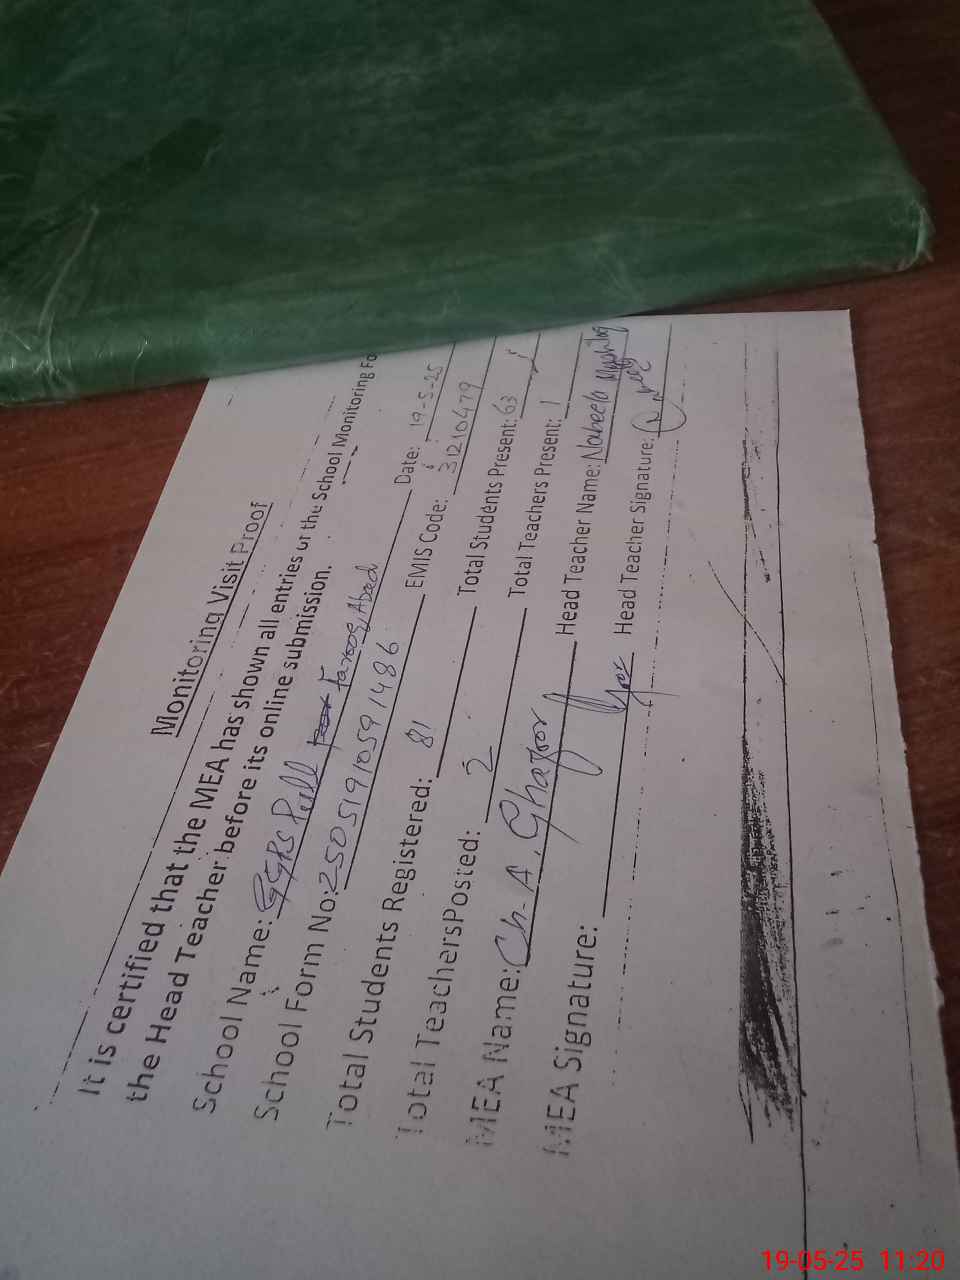 Monitoring Visit Proof
It is certified that the MEA has shown all entries of the School Monitoring Fo
the Head Teacher before its online submission.
School Name: GGPS Pull Farooq Abad Date: 19-5-25
School Form No: 25051910591486 EMIS Code: 31210479
Total Students Registered: 81 Total Students Present: 63
Total Teachers Posted: 2 Total Teachers Present: 1
MEA Name: Ch. A. Ghafoor Head Teacher Name: Naheela
MEA Signature: Head Teacher Signature:
19-05-25 11:20